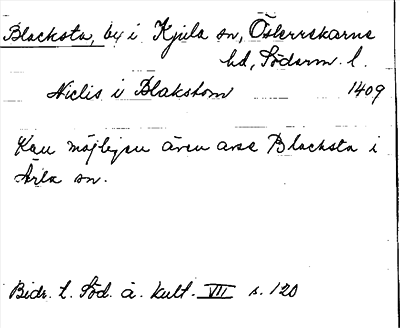 Blacksta, by i Kjula sn, Österrekarne
hd, Söderm. l.
Niclis i Blakstom 1409
Kan möjligen även avse Blacksta i
Ärla sn.
Bidr. t. Söd. ä. kult. VII s. 120